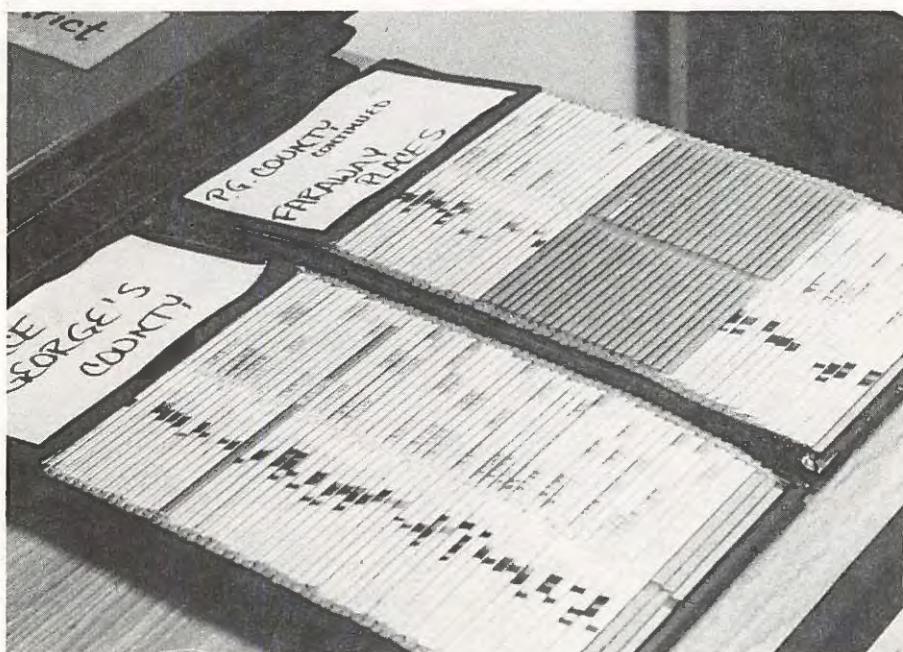 rict
P.G. COUNTY
CONTINUED
FARAWAY
PLACES
CE
GEORGE'S
COUNTY